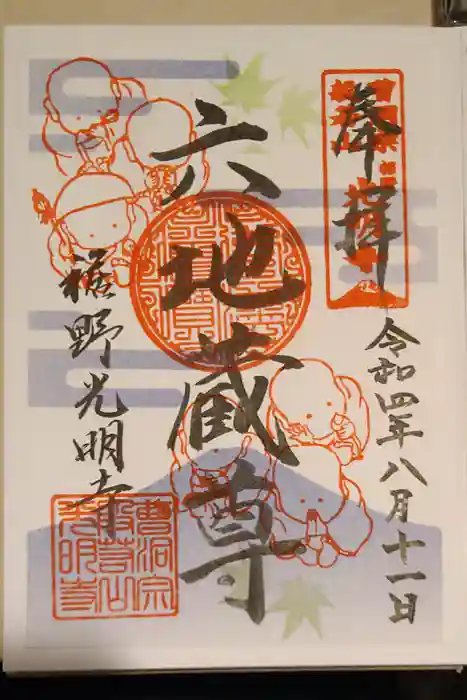 奉拝
令和四年八月十一日
六地蔵尊
裾野光明寺
曹洞宗
般若山
光明寺